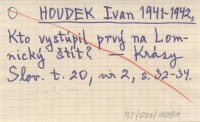 HOUDEK Ivan 1941-1942,
Kto vystúpil prvý na Lom-
nický štít? — Krásy
Slov. t. 20, nr 2, s. 32-34.